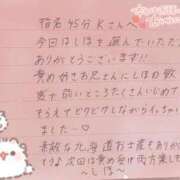 指名45分Kさんへ
今日はしほを選んでいただき
ありがとうございます!!
責め好きお兄さんにしほの敏
感で弱いところたくさんいじめて
もらえてビクビクしながらイっちゃい
ました〜♡
素敵な北海道お土産もありが
とう♪次回は責め受け両方楽しも
〜しほ〜